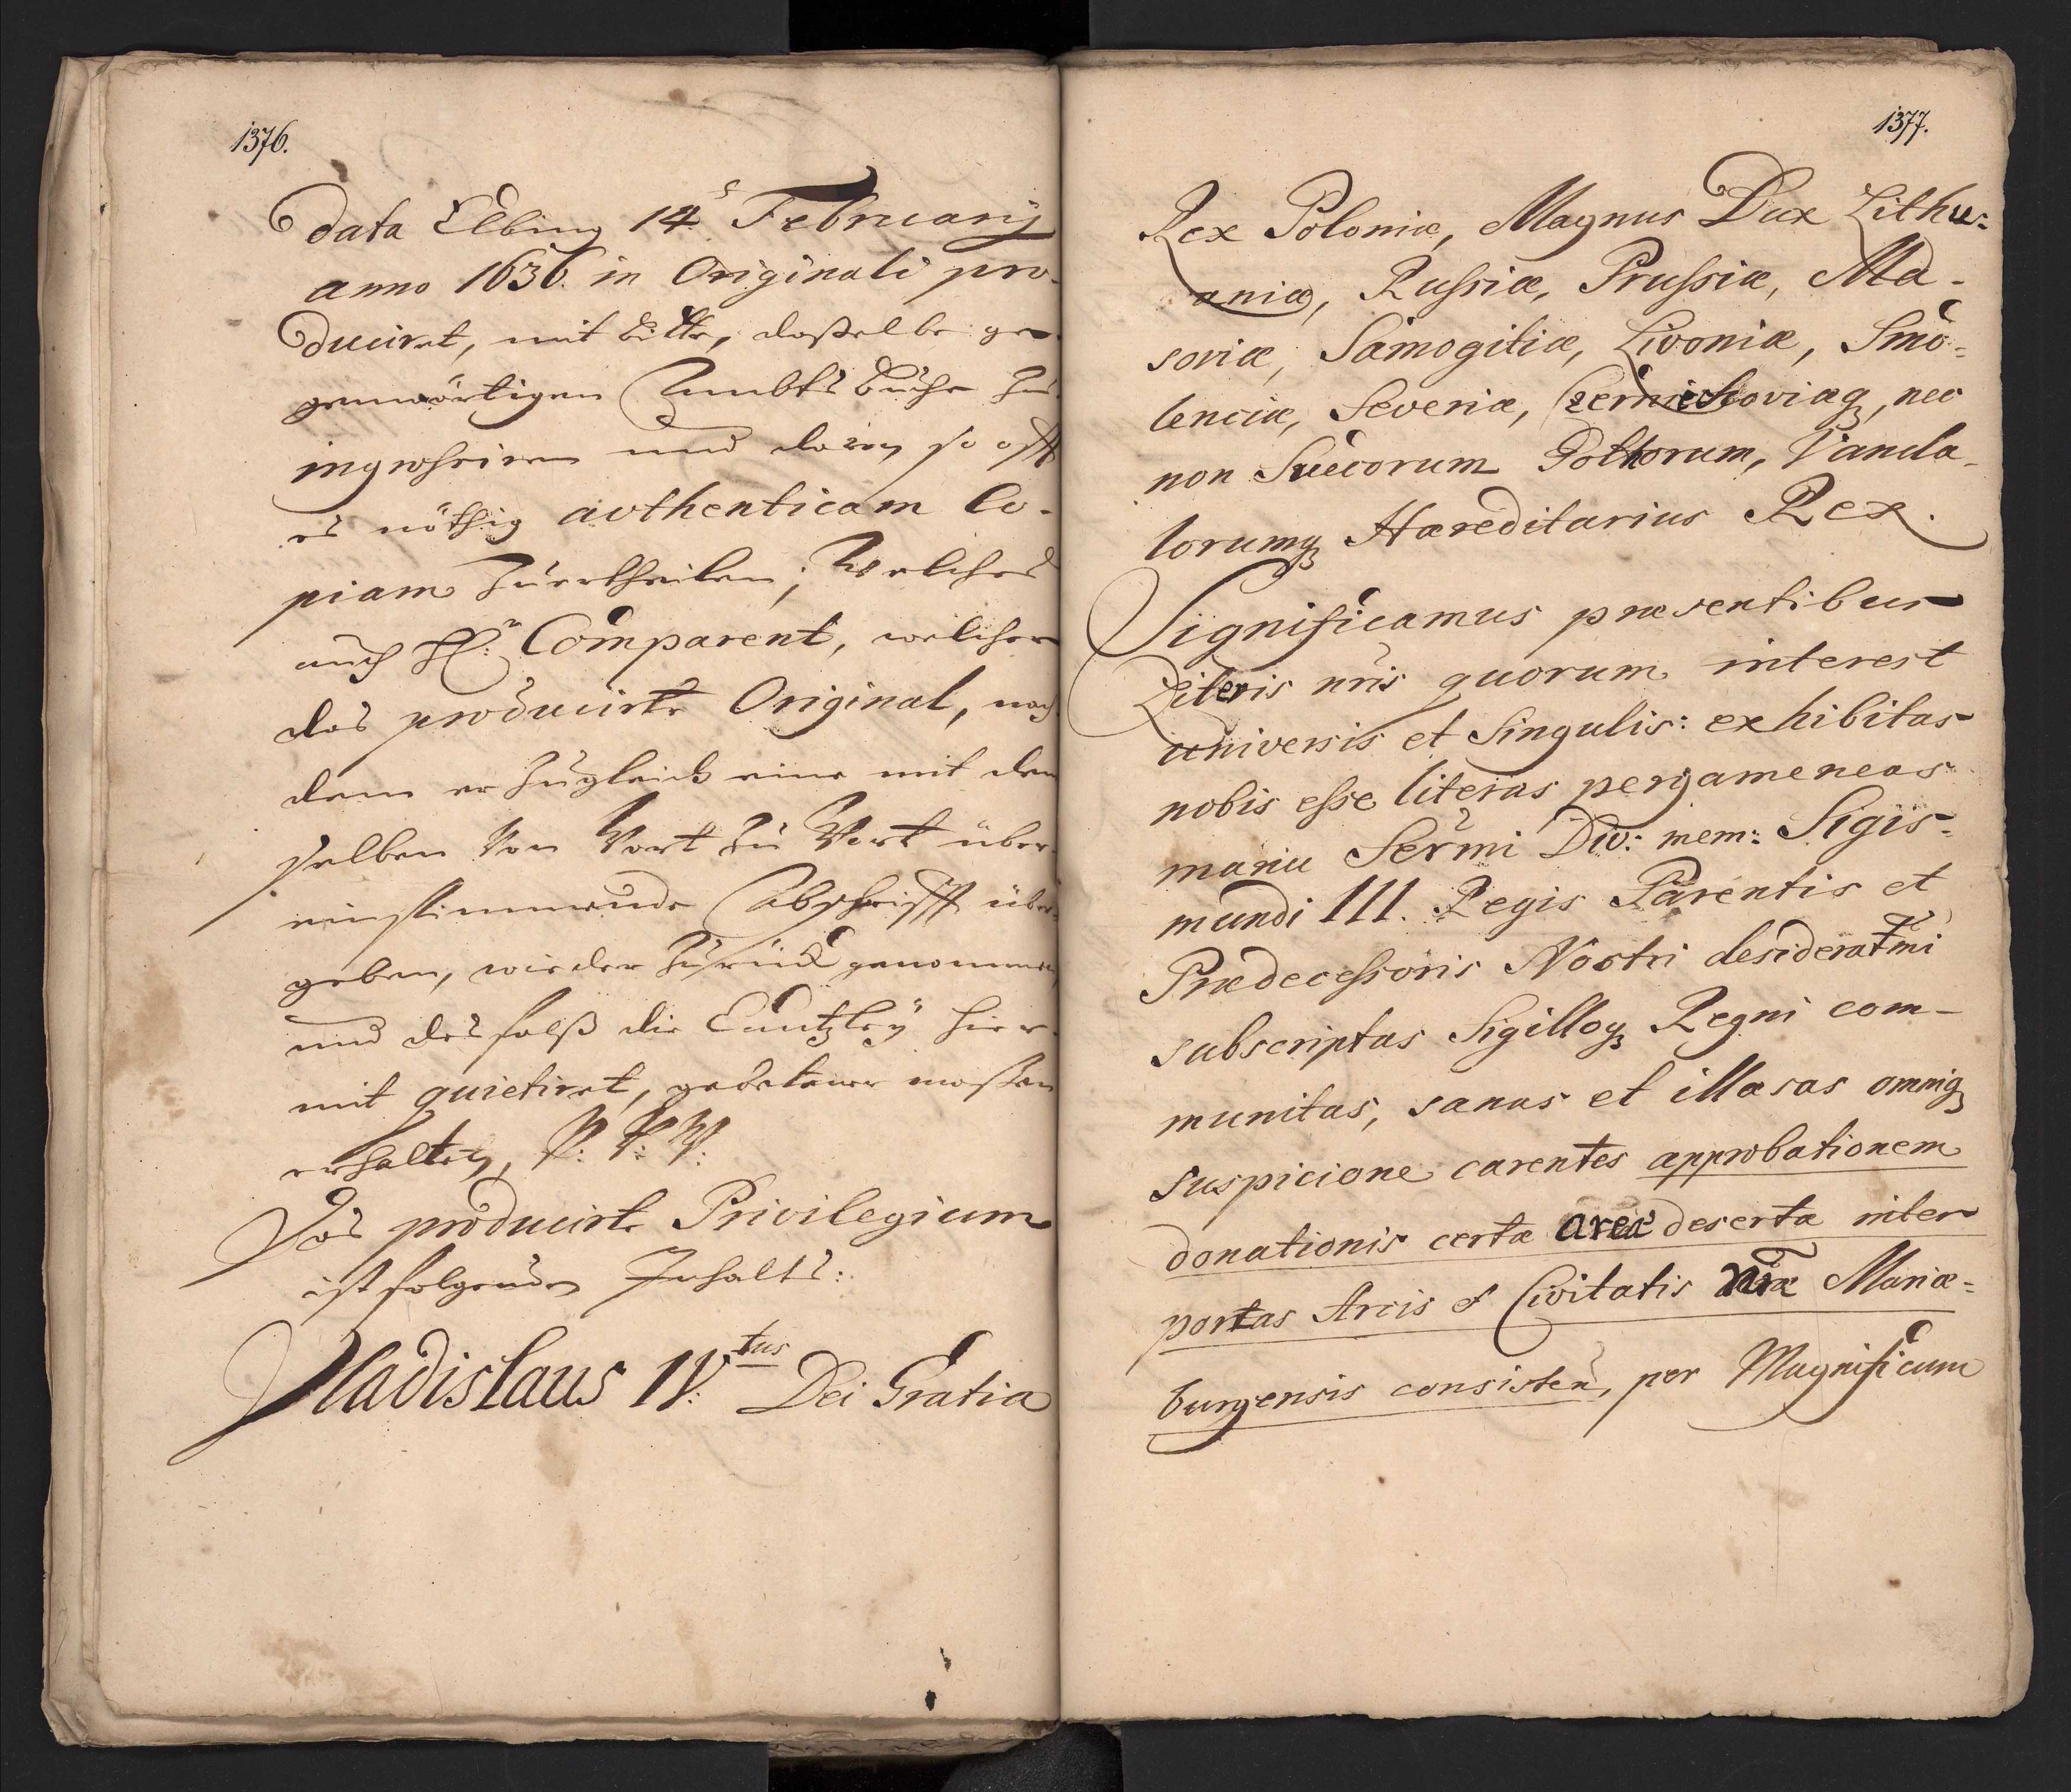 1376.
data Elbing 14 Februarij
anno 1636. in Originali pro-
duciret, mit bitte, dasselbe ge-
genwärtigen Ambts buche zu
ingrossiren und davon so offt
es nöthig authenticam Co-
piam zu ertheilen; Welches
auch H: Comparent, welcher
das producirte Original, nach
dem er zugleich eine mit dem
selben Von Wort zu Wort über-
einstimmende Abschrifft über-
geben, wieder zurück genommen,
und desfalß die Cantzley hier-
mit quietiret, gebetener maßen
erhalten,
Das producirte Privilegium
ist folgenden Inhalts:
Vladislaus IV:tus Dei Gratia
1377.
Rex Poloniæ, Magnus Dux Lithu-
aniæ, Russiæ, Prussiæ, Ma-
soviæ, Samogitiæ, Livoniæ, Smo-
lenciæ, Severiæ, Czernichoviæq, nec
non Suecorum Gothorum, Vanda-
lorumq Hæreditarius Rex.
Significamus præsentibus
Literis nris quorum interest
universis et Singulis: exhibitas
nobis esse literas pergameneas
manu Sermi Div: mem: Sigis-
mundi III. Regis Parentis et
Prædecessoris Nostri desideratmi
subscriptas Sigilloq Regni com-
munitas, sanas et illæsas omniq
suspicione carentes approbationem
donationis certæ areæ desertæ inter
portas Arcis et Civitatis nræ Mariæ-
burgensis consisten, per Magnificum